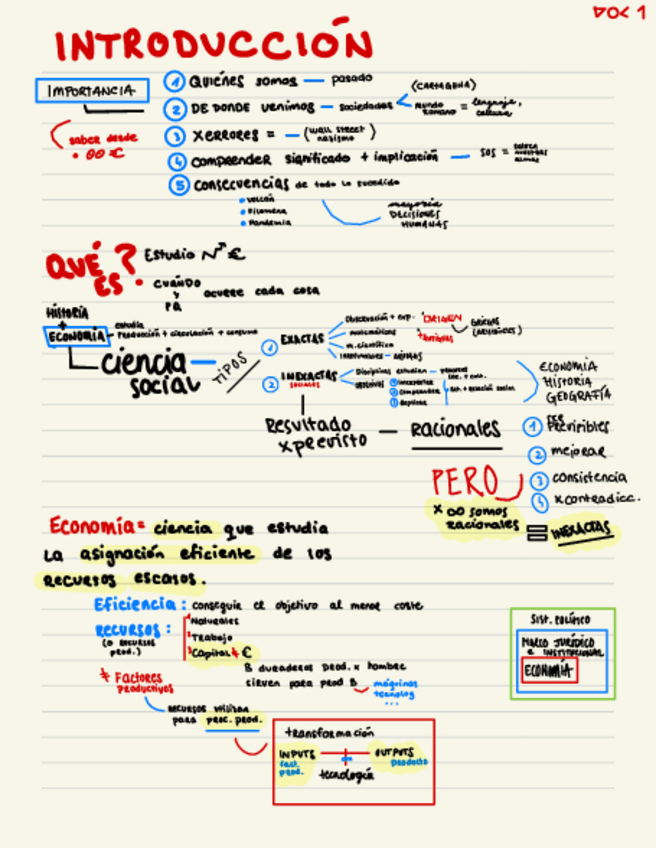 DOC 1
INTRODUCCIÓN
IMPORTANCIA
① QUIÉNES somos — pasado
② DE DONDE venimos — sociedades < (CARTAGENA)
mundo romano = lenguaje, cultura
saber desde
③ X ERRORES = — (Wall Street nazismo)
④ comprender significado + implicación — SOS =
⑤ consecuencias de todo lo sucedido
• volcán
• Filomena
• Pandemia
mayoría DECISIONES HUMANAS
QUÉ ES?
Estudio €
CUÁNDO y
ocurre cada cosa
HISTORIA
+
ECONOMÍA
estudia
Producción + circulación + consumo
ciencia social — TIPOS
① EXACTAS
Observación + exp.
matemáticas
m. científico
ORIGEN
② INEXACTAS
SOCIALES
Disciplinas estudian
objetivos
① interpretar
② comprender
③ explicar
ECONOMÍA
HISTORIA
GEOGRAFÍA
Resultado
x previsto — racionales
① previsibles
② mejorar
③ consistencia
④ x contradicc.
PERO
x no somos
racionales = INEXACTAS
Economía = ciencia que estudia
la asignación eficiente de los
recursos escasos.
Eficiencia: conseguir el objetivo al menor coste
RECURSOS:
(o recursos prod.)
1 Naturales
2 Trabajo
3 Capital ≠ €
B duraderos prod. x hombre
sirven para prod B
máquinas
tecnolog
...
≠ Factores
productivos
RECURSOS utilizan
para proc. prod.
SIST. POLÍTICO
MARCO JURÍDICO
e INSTITUCIONAL
ECONOMÍA
transformación
INPUTS — OUTPUTS
fact. prod.
producto
tecnología